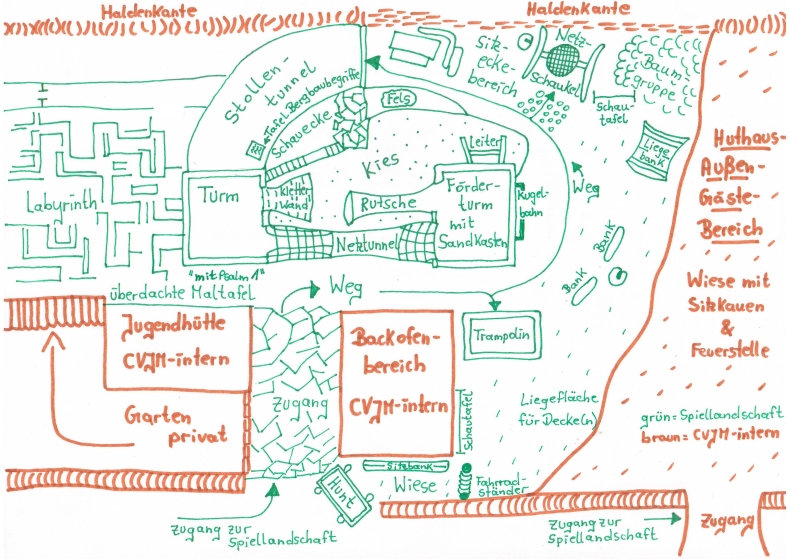 Haldenkante
Haldenkante
Stollen-
tunnel
Tafel Bergbaubegriffe
Schauecke
Fels
Sitz-
ecke-
bereich
Netz-
Schaukel
Baum-
gruppe
Schau-
tafel
Liege-
bank
Huthaus-
Außen-
Gäste-
Bereich
Labyrinth
Turm
Kletter
Wand
Kies
Leiter
Rutsche
Förder-
turm
mit
Sandkasten
Kugel-
bahn
Weg
Netztunnel
"mit Psalm 1"
überdachte Maltafel
Weg
Bank
Bank
Wiese mit
Sitzkauen
&
Feuerstelle
Jugendhütte
CVJM-intern
Backofen-
bereich
CVJM-intern
Trampolin
Garten
privat
Zugang
Schautafel
Liegefläche
für Decke(n)
grün=Spiellandschaft
braun=CVJM-intern
Sitzbank
Wiese
Hunt
Fahrrad-
ständer
Zugang zur
Spiellandschaft
Zugang zur
Spiellandschaft
Zugang